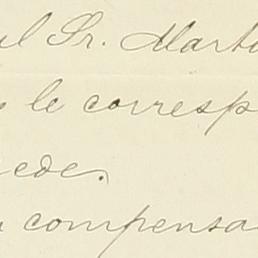 al Sr. Marti
le corresp
cede.
compensa